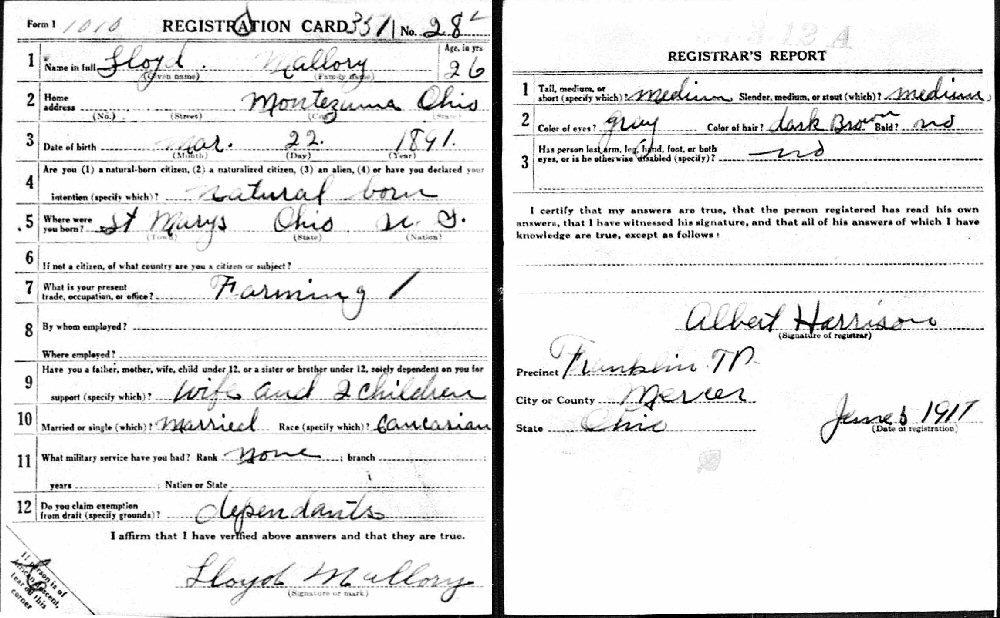 Form 1 1010 REGISTRATION CARD 3571 No. 28
1 Name in full Lloyd. Mallory Age, in yrs 26
(Given name) (Family name)
2 Home address Montezuma Ohio
(No.) (Street) (City) (State)
3 Date of birth Mar. 22. 1891.
(Month) (Day) (Year)
4 Are you (1) a natural-born citizen, (2) a naturalized citizen, (3) an alien, (4) or have you declared your
intention (specify which)? natural born
5 Where were you born? St Marys Ohio U.S.
(Town) (State) (Nation)
6 If not a citizen, of what country are you a citizen or subject?
7 What is your present trade, occupation, or office? Farming /
8 By whom employed?
Where employed?
9 Have you a father, mother, wife, child under 12, or a sister or brother under 12, solely dependent on you for
support (specify which)? wife and 2 children
10 Married or single (which)? Married Race (specify which)? Caucasian
11 What military service have you had? Rank none ; branch
years ; Nation or State
12 Do you claim exemption from draft (specify grounds)? dependants
I affirm that I have verified above answers and that they are true.
Lloyd Mallory
(Signature or mark)
If person is of
African descent,
tear off this
corner
REGISTRAR'S REPORT
1 Tall, medium, or short (specify which)? medium Slender, medium, or stout (which)? medium
2 Color of eyes? gray Color of hair? dark Brown Bald? no
3 Has person lost arm, leg, hand, foot, or both
eyes, or is he otherwise disabled (specify)? no
I certify that my answers are true, that the person registered has read his own
answers, that I have witnessed his signature, and that all of his answers of which I have
knowledge are true, except as follows:
Albert Harrison
(Signature of registrar)
Precinct Franklin TP.
City or County Mercer
State Ohio June 5 1917
(Date of registration)